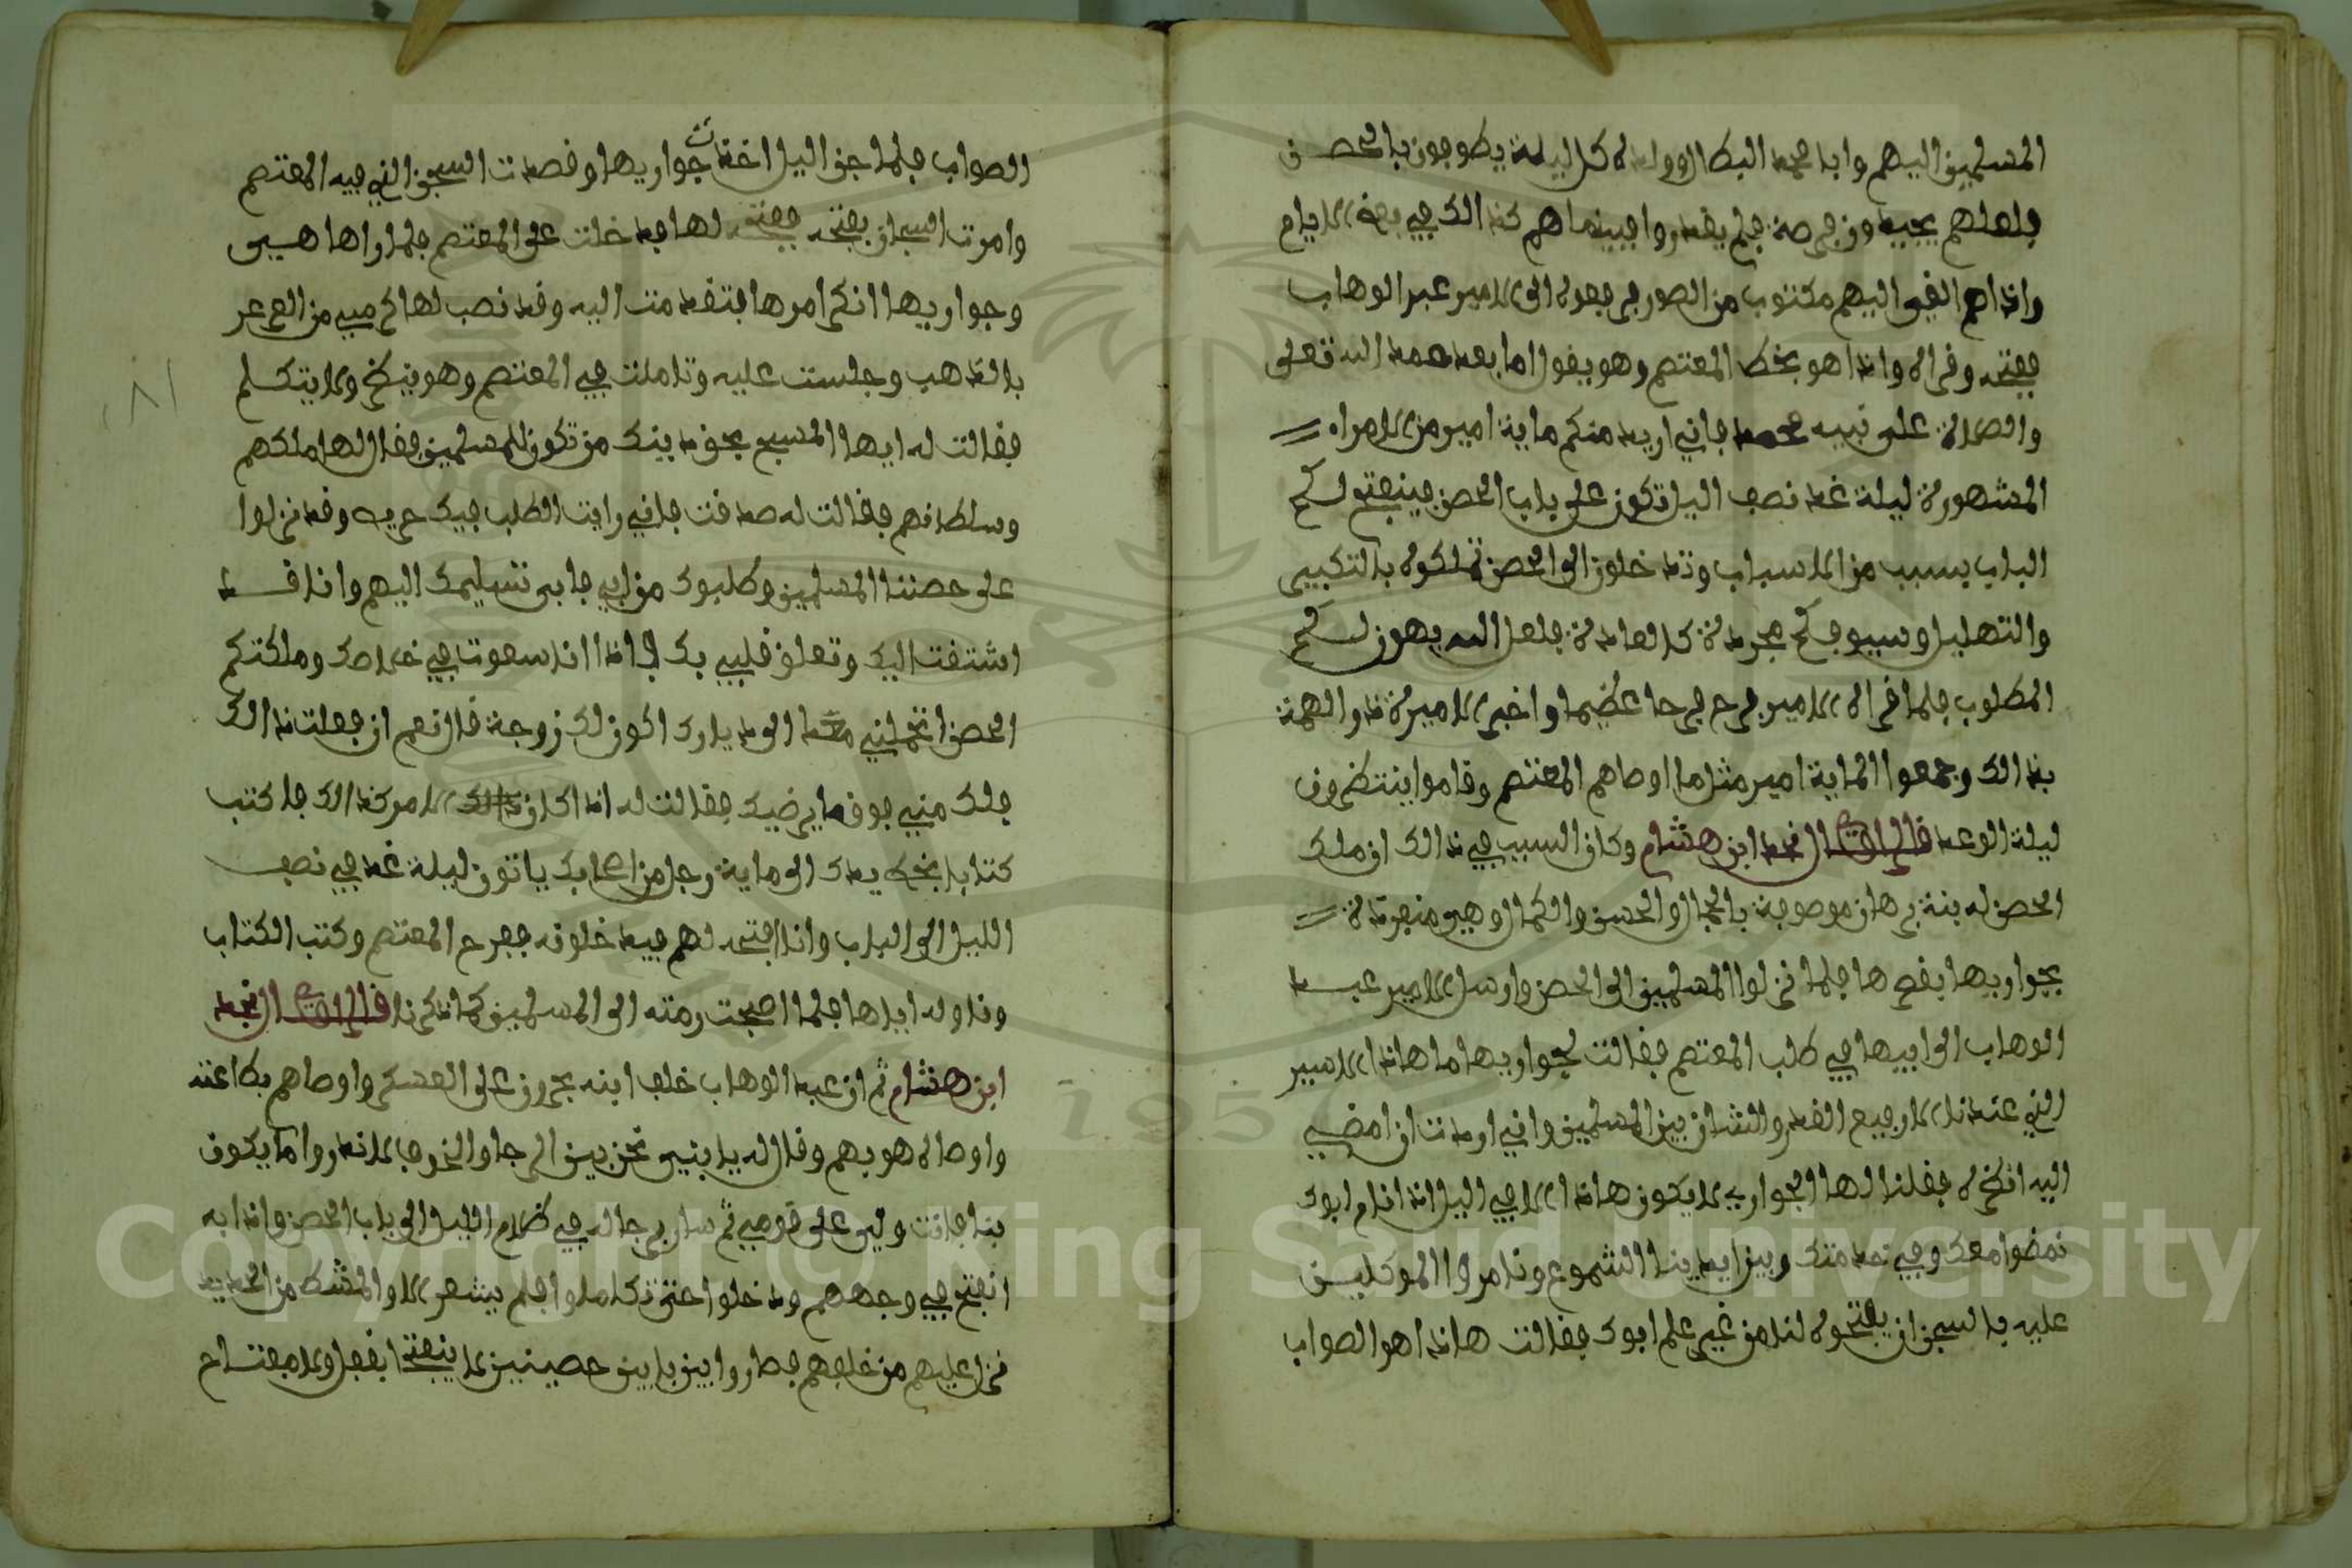 المسلمين اليهم وابا محمد البطال واولاده كل ليلة يطوفون بالحصن
فلعلهم يجيدون فرصة فلم يقدروا فبينما هم كذالك في بعض الايام
واذاهم القي اليهم مكتوب من الصور فرفعوه الى الامير عبد الوهاب
ففتحه وقراه واذا هو بخط المعتصم وهو يقول اما بعد حمد الله تعلى
والصلاة على نبيه محمد فاني اريد منكم ماية امير من الامراء
المشهورة ليلة غد نصف اليل تكون على باب الحصن فينفتح لكم
الباب بسبب من الاسباب وتدخلون الى الحصن تملكوه بالتكبير
والتهليل وسيوفكم مجردة كالعادة فلعل الله يهون لكم
المطلوب فلما قراه الامير فرح فرحا عظيما واخبر الاميرة ذو الهمة
بذالك وجمعوا الماية امير مثل ما اوصاهم المعتصم وقاموا ينتظرون
ليلة الوعد قال الراوي النجد ابن هشام وكان السبب في ذالك ان ملك
الحصن له بنة برهان موصوفة بالجمال والحسن والكمال وهي منفردة
بجواريها بقصرها فلما نزلوا المسلمين الى الحصن وارسل الامير عبد
الوهاب الى ابيها في طلب المعتصم فقالت لجواريها ما هاذا الاسير
الذي عندنا الا رفيع القدر والشان بين المسلمين واني اردت ان امضي
اليه انظره فقلنا لها الجواريه لا يكون هاذا الا في اليل اذا نام ابوك
نمضوا معك وفي خدمتك وبين ايدينا الشموع وتامروا الموكلين
عليه بالسجن ان يفتحوه لنا من غير علم ابوك فقالت هاذا هو الصواب
الصواب فلما جن اليل اخذت جواريها وقصدت السجن الذي فيه المعتصم
وامرت السجان بفتحه ففتحه لها فدخلت على المعتصم فلما راها هي
وجواريها انكر امرها فتقدمت اليه وقد نصب لها كرسي من العرعر
بالذهب وجلست عليه وتاملت في المعتصم وهو ينظر ولا يتكلم
فقالت له ايها المسبح بحق دينك من تكون للمسلمين فقال لها ملكهم
وسلطانهم فقالت له صدقت فاني رايت الطلب فيك حريه وقد نزلوا
على حصننا المسلمين وطلبوك من ابي فابى تسليمك اليهم وانا قد
اشتقت اليك وتعلق قلبي بك اذا انا سعوت في خلاصك وملكتكم
الحصن اتحملني معك الى ديارك اكون لك زوجة قال نعم ان فعلت ذالك
فلك مني فوق ما يرضيك فقالت له اذا كان الامر كذالك فاكتب
كتابا بخط يدك الى ماية رجل من اصحابك ياتون ليلة غد في نصف
الليل الى الباب وانا افتحه لهم فيدخلونه ففرح المعتصم وكتب الكتاب
وناوله اياها فلما اصبحت رمته الى المسلمين كما ذكرنا قال الراوي النجد
ابن هشام ثم ان عبد الوهاب خلف ابنه بحرون على العسكر واوصاهم بطاعته
واوصاه هو بهم وقال له يا بني نحن بين الرجا والخوف لا ندروا ما يكون
بنا فانت ولي على قومي ثم سار برجاله في ظلام الليل الى باب الحصن واذا به
انفتح في وجههم ودخلوا حتى تكاملوا فلم يشعر الا والمشط من الحديد
نزل عليهم من خلفهم فصاروا بين بابين حصينين لا ينفتحا بقفل ولا مفتاح